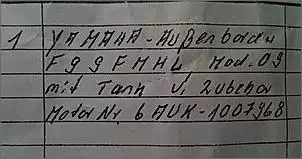 1 YAMAHA-Außenborder
F99FMHL Mod. 09
mit Tank u. Zubehör
Motor Nr. 6AUK-1007968